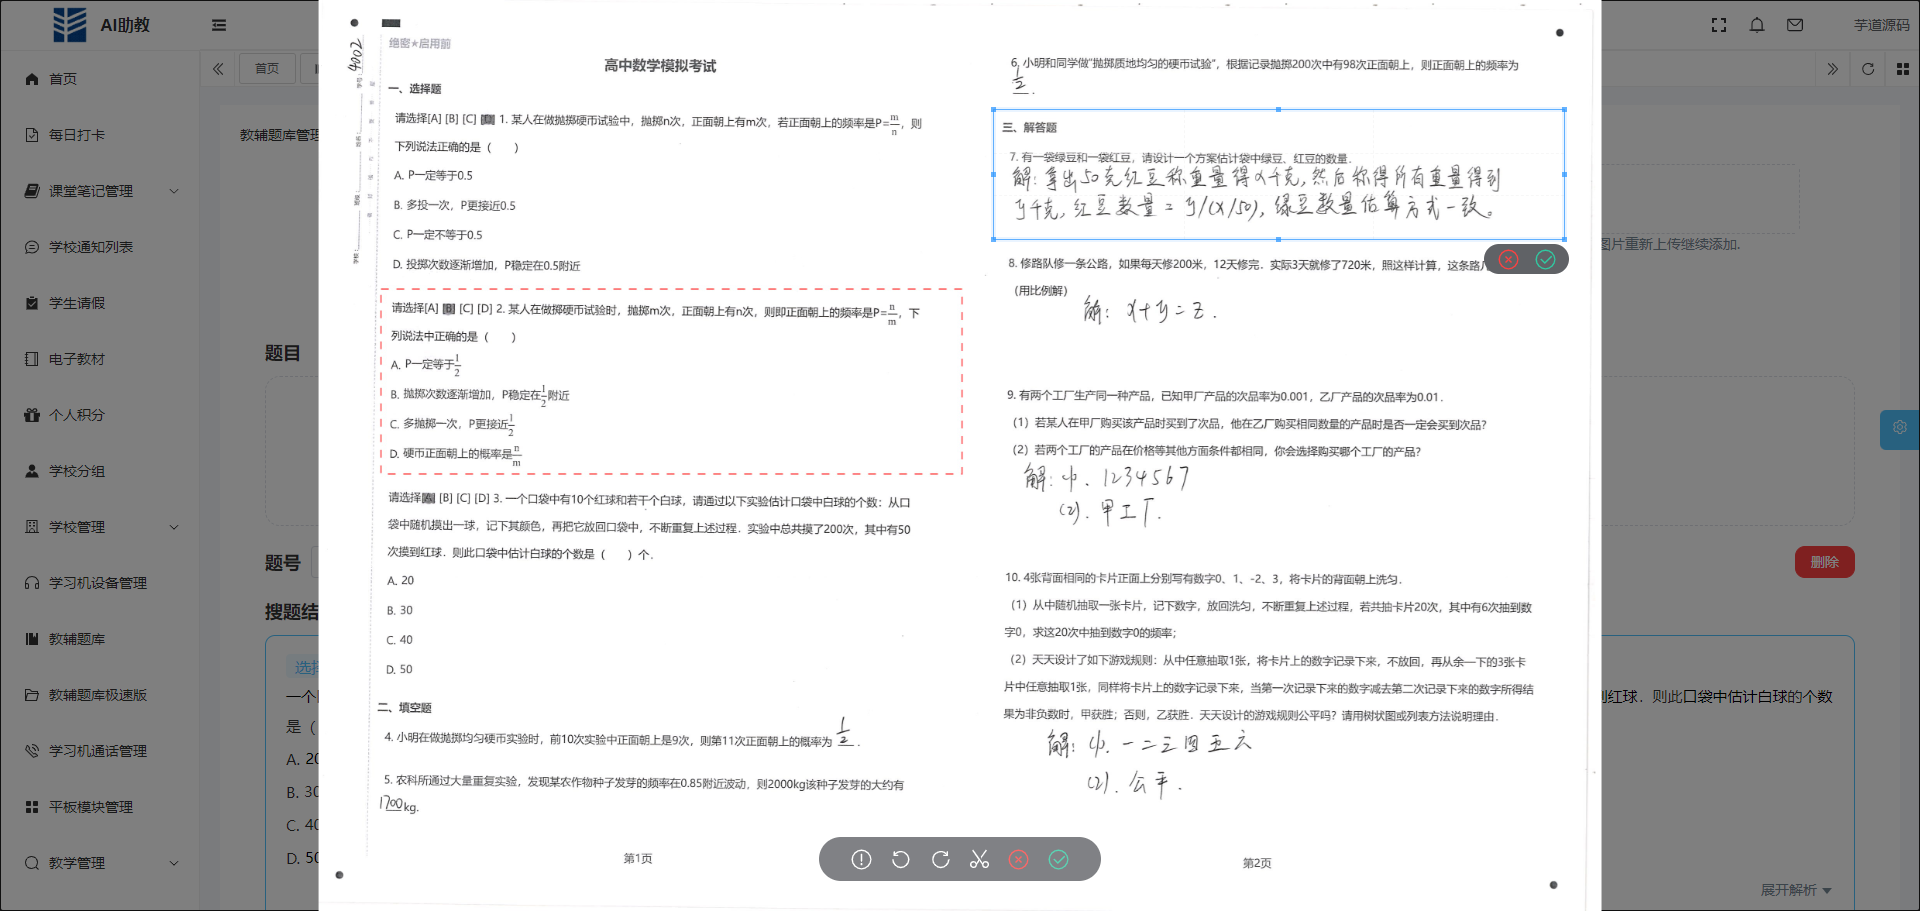 AI助教
芋道源码
首页
每日打卡
课堂笔记管理
学校通知列表
学生请假
电子教材
个人积分
学校分组
学校管理
学习机设备管理
教辅题库
教辅题库极速版
学习机通话管理
平板模块管理
教学管理
首页
教辅题库管理
题目
题号
搜题结
选择
一个
是（
A. 20
B. 30
C. 40
D. 50
4002
绝密★启用前
高中数学模拟考试
一、选择题
请选择[A] [B] [C] [D] 1. 某人在做抛掷硬币试验中，抛掷n次，正面朝上有m次，若正面朝上的频率是P=m/n，则
下列说法正确的是（　　）
A. P一定等于0.5
B. 多投一次，P更接近0.5
C. P一定不等于0.5
D. 投掷次数逐渐增加，P稳定在0.5附近
请选择[A] [B] [C] [D] 2. 某人在做掷硬币试验时，抛掷m次，正面朝上有n次，则即正面朝上的频率是P=n/m，下
列说法中正确的是（　　）
A. P一定等于1/2
B. 抛掷次数逐渐增加，P稳定在1/2附近
C. 多抛掷一次，P更接近1/2
D. 硬币正面朝上的概率是n/m
请选择[A] [B] [C] [D] 3. 一个口袋中有10个红球和若干个白球，请通过以下实验估计口袋中白球的个数：从口
袋中随机摸出一球，记下其颜色，再把它放回口袋中，不断重复上述过程．实验中总共摸了200次，其中有50
次摸到红球．则此口袋中估计白球的个数是（　　）个．
A. 20
B. 30
C. 40
D. 50
二、填空题
4. 小明在做抛掷均匀硬币实验时，前10次实验中正面朝上是9次，则第11次正面朝上的概率为 1/2 ．
5. 农科所通过大量重复实验，发现某农作物种子发芽的频率在0.85附近波动，则2000kg该种子发芽的大约有
1700kg.
第1页
6. 小明和同学做“抛掷质地均匀的硬币试验”，根据记录抛掷200次中有98次正面朝上，则正面朝上的频率为
1/2．
三、解答题
7. 有一袋绿豆和一袋红豆，请设计一个方案估计袋中绿豆、红豆的数量．
解：拿出50克红豆称重量得x千克，然后称得所有重量得到
y千克，红豆数量=y/(x/50)，绿豆数量估算方式一致。
8. 修路队修一条公路，如果每天修200米，12天修完．实际3天就修了720米，照这样计算，这条路
（用比例解）
解：x+y=z．
9. 有两个工厂生产同一种产品，已知甲厂产品的次品率为0.001，乙厂产品的次品率为0.01．
（1）若某人在甲厂购买该产品时买到了次品，他在乙厂购买相同数量的产品时是否一定会买到次品？
（2）若两个工厂的产品在价格等其他方面条件都相同，你会选择购买哪个工厂的产品？
解：(1)．1234567
(2)．甲工厂．
10. 4张背面相同的卡片正面上分别写有数字0、1、-2、3，将卡片的背面朝上洗匀．
（1）从中随机抽取一张卡片，记下数字，放回洗匀，不断重复上述过程，若共抽卡片20次，其中有6次抽到数
字0，求这20次中抽到数字0的频率；
（2）天天设计了如下游戏规则：从中任意抽取1张，将卡片上的数字记录下来，不放回，再从余一下的3张卡
片中任意抽取1张，同样将卡片上的数字记录下来，当第一次记录下来的数字减去第二次记录下来的数字所得结
果为非负数时，甲获胜；否则，乙获胜．天天设计的游戏规则公平吗？请用树状图或列表方法说明理由．
解：(1)．一二三四五六
(2)．公平．
第2页
图片重新上传继续添加.
删除
到红球．则此口袋中估计白球的个数
展开解析